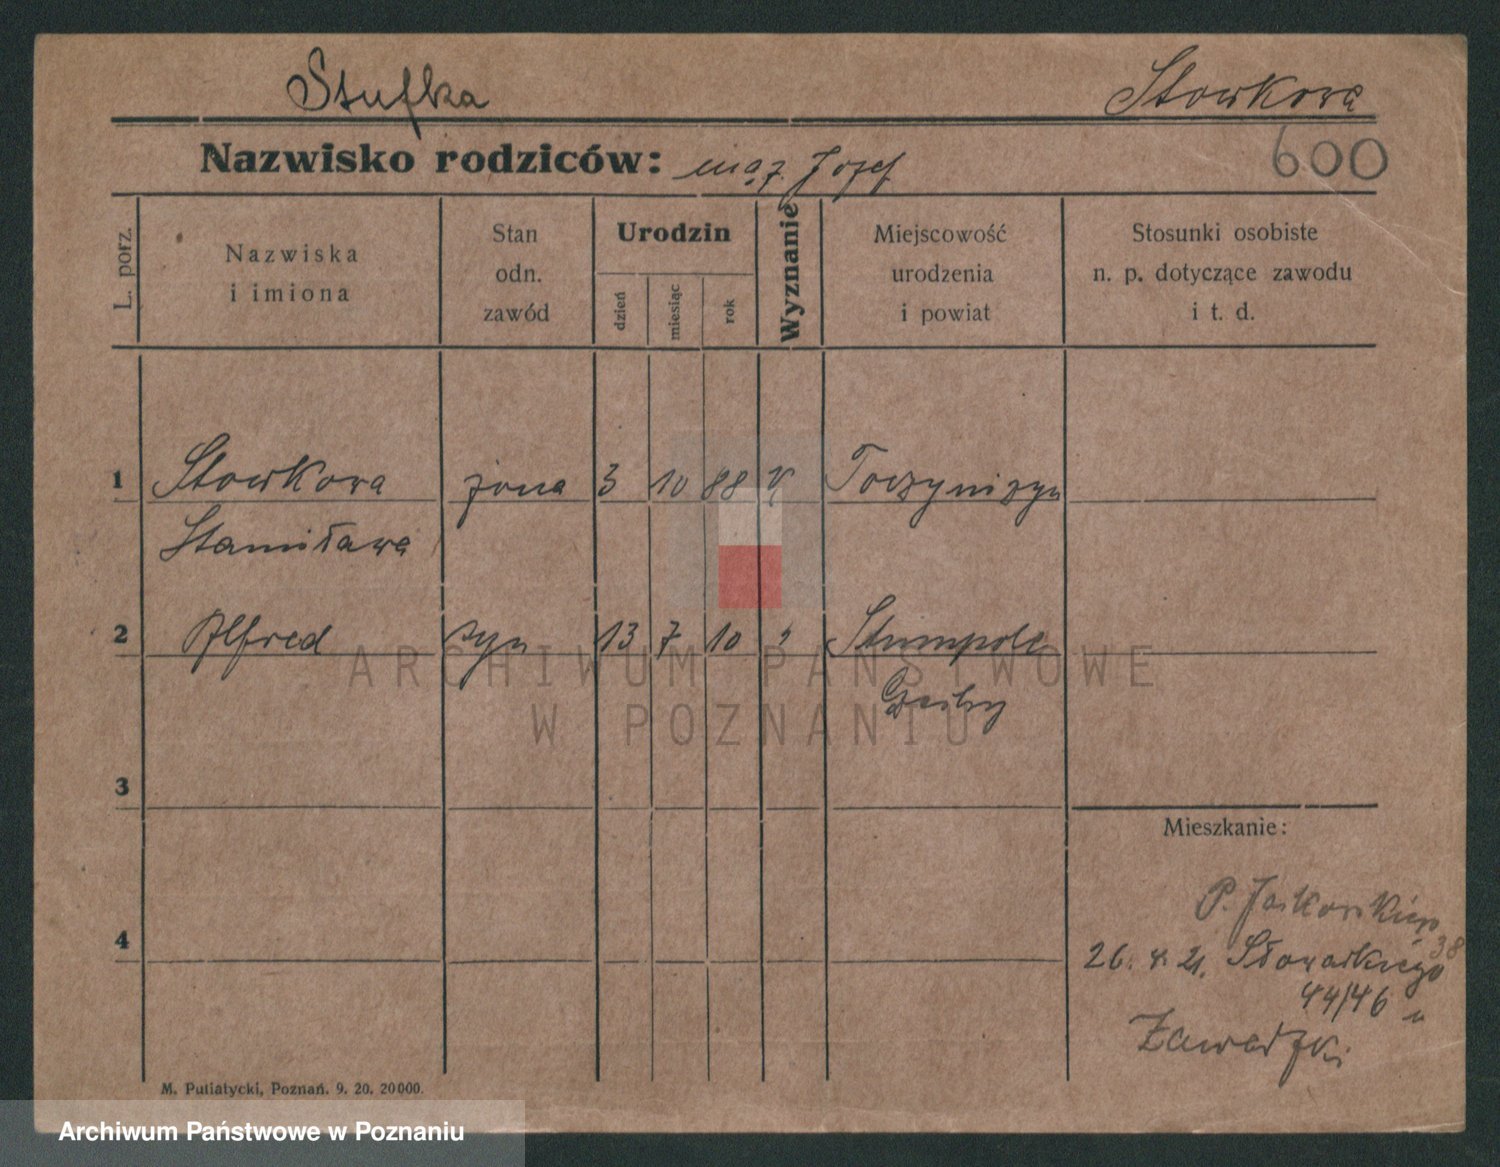 Stufka Stowkowa
Nazwisko rodziców: mąż. Józef
600
L. porz.
Nazwiska
i imiona
Stan
odn.
zawód
Urodzin
dzień
miesiąc
rok
Wyznanie
Miejscowość
urodzenia
i powiat
Stosunki osobiste
n. p. dotyczące zawodu
i t. d.
1 Stowkowa żona 3 10 88
Stanisława
2 Alfred syn 13 7 10 Stumpole
3
Mieszkanie:
4
P. Jackowskiego 38
26. 4. 21. Słowackiego
44/46 u
Zawadzki
M. Putiatycki, Poznań. 9. 20. 20000.
ARCHIWUM PAŃSTWOWE
W POZNANIU
Archiwum Państwowe w Poznaniu